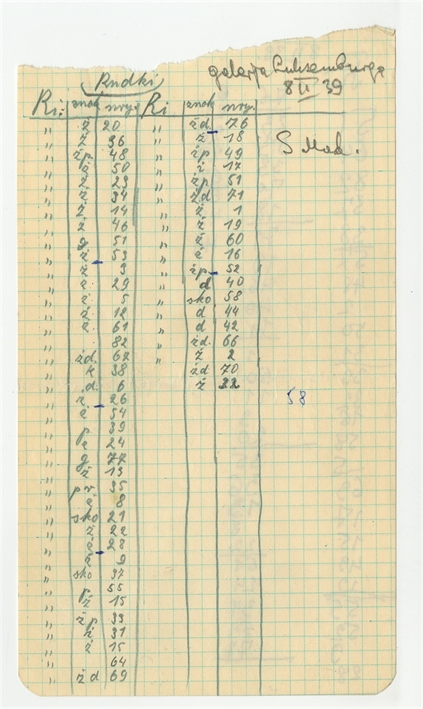 Rudki
galerja Luksemburga
8 II 39
Ri: znak nry. Ri znak nry.
S Mad.
" ż 20 " żd 76
" ż 36 " ż 18
" żp 48 " żp 49
" ż 50 " ż 17
" ż 29 " żp 51
" ż 34 " żd 71
" ż 14 " ż 1
" ż 46 " ż 19
" g 51 " ż 60
" ż 53 " ż 16
" ż 3 " żp 52
" ż 29 " d 40
" ż 5 " sko 58
" ż 12 " d 44
" ż 61 " d 42
" 82 " żd. 66
" żd. 62 " ż 2
" k 38 żd 70
" d. 6 ż 32
" ż 26
58
" ż 54
" p 39
" ż 24
" g 77
" ż 13
" pr 35
" ż 8
" sko 21
" ż 22
" ż 28
" ż 9
" sko 37
" p 55
" ż 15
" żp 33
" ż 31
" ż 15
" 64
" żd 69